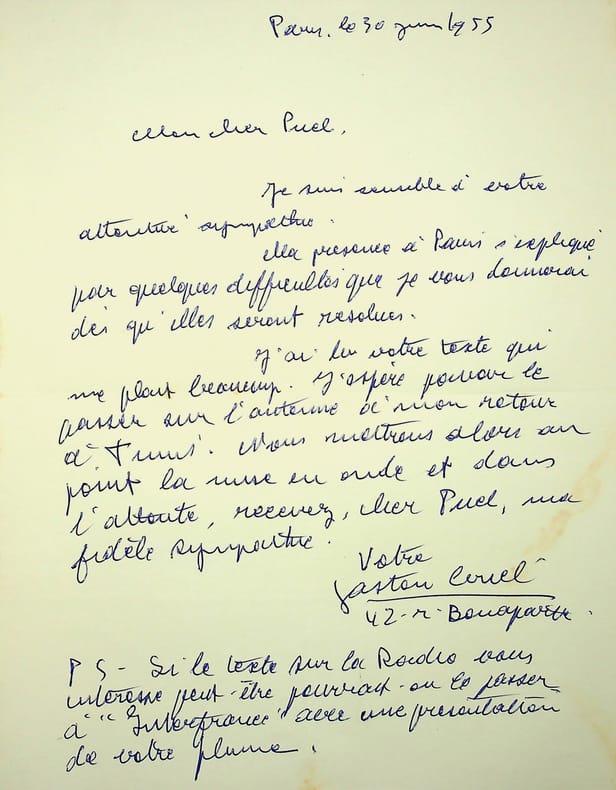 Paris, le 30 juin 1955
Mon cher Puel,
Je suis sensible à votre
attentive sympathie.
Ma présence à Paris s'explique
par quelques difficultés que je vous donnerai
dès qu'elles seront résolues.
J'ai lu votre texte qui
me plait beaucoup. J'espère pouvoir le
passer sur l'antenne à mon retour
à Tunis. Nous mettrons alors au
point la mise en onde et dans
l'attente, recevez, cher Puel, ma
fidèle sympathie.
Votre
Gaston
42 - r. Bonaparte.
PS - Si le texte sur la Radio vous
intéresse peut-être pourrait-on le passer
à "Interfrance" avec une présentation
de votre plume.